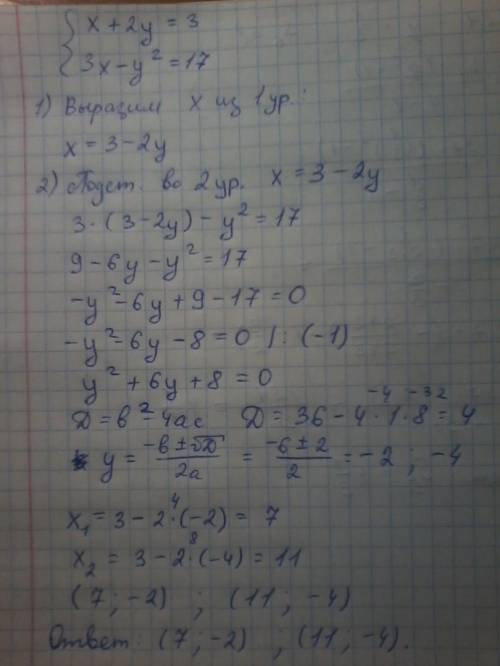 { x + 2y = 3
3x - y² = 17
1) Выразим x из 1 ур.:
x = 3 - 2y
2) Подст. во 2 ур. x = 3 - 2y
3·(3 - 2y) - y² = 17
9 - 6y - y² = 17
-y² - 6y + 9 - 17 = 0
-y² - 6y - 8 = 0 |: (-1)
y² + 6y + 8 = 0
-4 -32
D = b² - 4ac D = 36 - 4·1·8 = 4
y = (-b ± √D)/2a = (-6 ± 2)/2 = -2 ; -4
4
x₁ = 3 - 2·(-2) = 7
8
x₂ = 3 - 2·(-4) = 11
(7 ; -2) ; (11 ; -4)
Ответ: (7 ; -2) ; (11 ; -4).